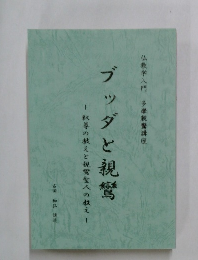 仏教学入門 多摩親鸞講座
ブッダと親鸞
ー釈尊の教えと親鸞聖人の教えー